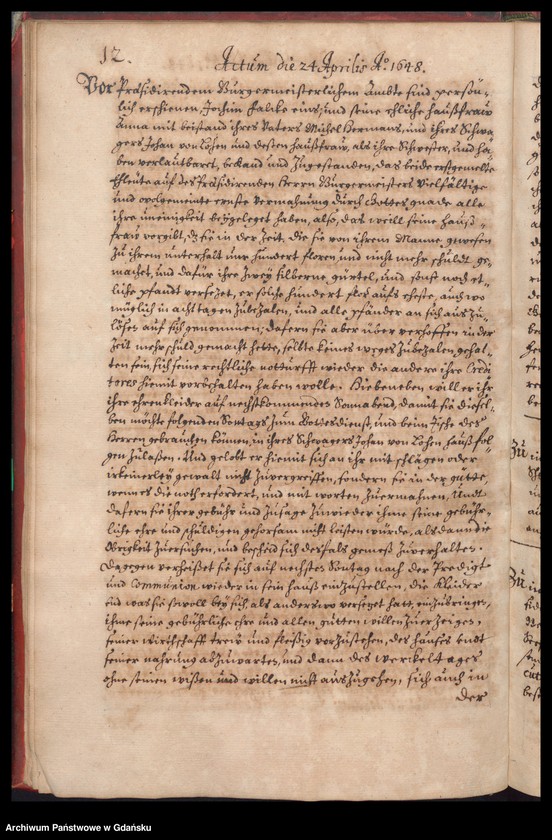 12.
Actum die 24 Aprilis Aº 1648.
Vor Præsidirendem Burgermeisterlichem Ambte sind persön-
lich erschienen, Jochim Falcke eins, und seine ehliche haußfraw
Anna mit beistand ihres Vaters Michel Hermans, und ihres Schwa-
gers Johan von Lohen und dessen haußfraw, als ihre Schwester, und ha-
ben verlautbaret, bekand und zugestanden, das beide erstgemelte
Ehleute auf des Præsidirenden Herren Burgermeisters vielfältige
und wolgemeinte ernste vermahnung durch Gottes gnade alle
ihre uneinigkeit beygeleget haben, also, das weill seine hauß-
fraw vorgibt, dz sie in der Zeit, die sie von ihrem Manne gewesen
zu ihrem unterhalt nur hundert floren und nicht mehr schuldt ge-
machet, und dafür ihre zwey silberne gürtel, und sonst noch et-
liche pfandt versetzet, er solche hundert flor aufs eheste, auch wo
müglich in acht tagen zubezalen, und alle pfänder an sich auszu-
lösen auf sich genommen; dafern sie aber über verhoffen in der
Zeit mehr schuld gemacht hette, selbte keines weges zubezalen gehal-
ten sein, sich seine rechtliche notturfft wieder die andere ihre Credi-
tores hiemit vorbehalten haben wolle. Hiebeneben will er ihr
ihre ehrenkleider auf nechstkommendes Sonnabend, damit sie diesel-
ben möchte folgenden Sontags zum Gottesdienst, und beim Tische des
Herren gebrauchen können, in ihres Schwagers Johan von Lohen hauß fol-
gen zulaßen. Und gelobt er hiemit sich an ihr mit schlägen oder
irkeinerley gewalt nicht zuvergreiffen, sondern sie in der gütte,
wenn es die noth erfordert, und mit worten zuermahnen, Undt
dafern sie ihrer gebühr und zusage zuwieder ihme seine gebühr-
liche ehre und schuldigen gehorsam nicht leisten würde, alsdann die
Obrigkeit zuersuchen, und bescheid sich desfals gemeß zuverhalten.
Dagegen verheißet sie sich auf nechsten Sontag nach der Predigt
und Communion wieder in sein hauß einzustellen, die Kleider
und was sie sowoll bey sich, als anderswo versetzet hatt, einzubringen,
ihme seine gebührliche ehre und allen gutten willen zuerzeigen,
seiner wirthschafft trew und fleißig vorzustehen, des hauses undt
seiner nahrung abzuwarten, und dann des werckeltages
ohne seinen wißen und willen nicht auszugehen, sich auch in
der
Archiwum Państwowe w Gdańsku